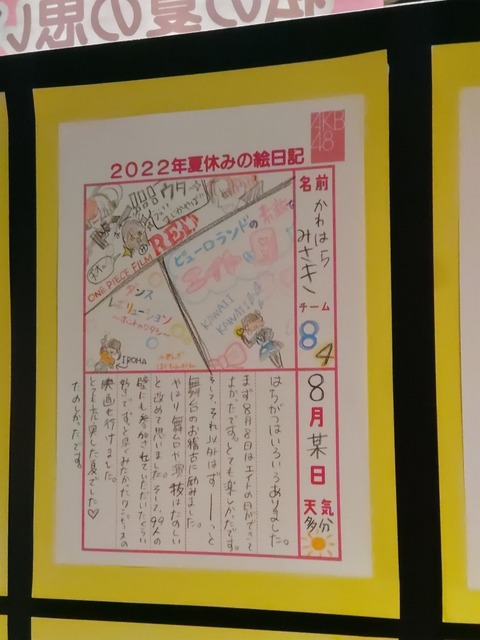 の夏の思い
AKB
48
2022年夏休みの絵日記
名前
かわはら
みさき
チーム
8
4
8月某日
天気
多分
ウタ
ONE PIECE FILM
RED
ピューロランドの
エイトの日
KAWAII
KAWAII
ダンス
レボリューション
IROHA
はちがつはいろいろありました。
まず8月8日はエイトの日ができて
よかったです。とても楽しかったです。
そして、それ以外はずーーっと
舞台のお稽古に励みました。
やはり舞台や演技はたのしい
と改めて思いました。そして、99人の
壁にも参加させていただいたぐらい
映画も行けました。
とても充実した夏でした♡
たのしかったです。